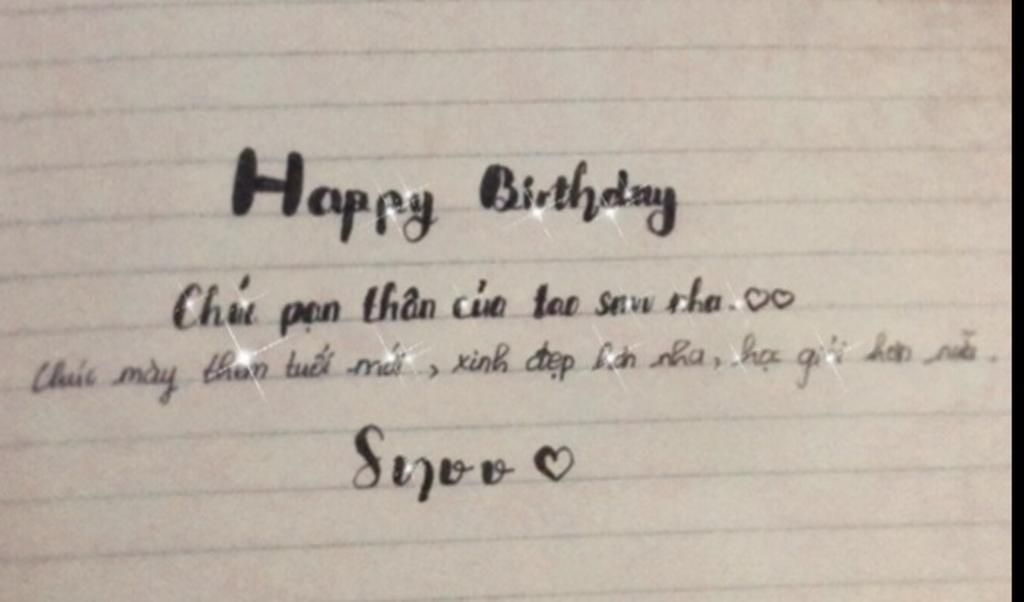 Happy Birthday
Chúc pạn thân của tao snvv nha.♡♡
Chúc mày thêm tuổi mới, xinh đẹp hơn nha, học giỏi hơn nữa.
♡